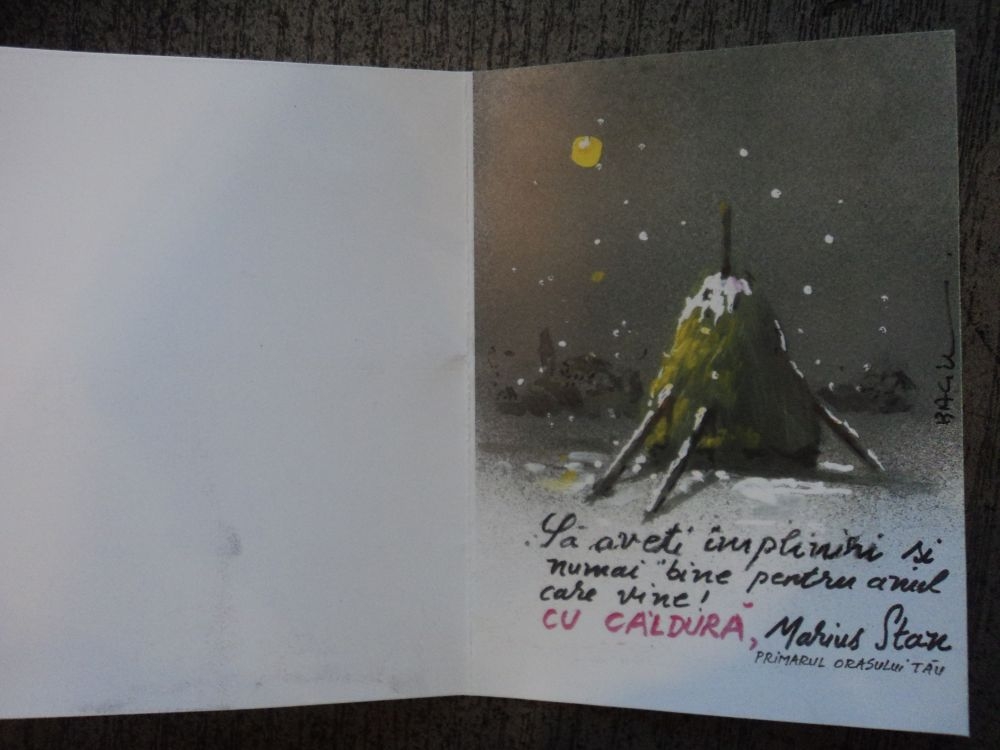 BACIU
Să aveti împliniri si
numai bine pentru anul
care vine!
CU CĂLDURĂ, Marius Stan
PRIMARUL ORASULUI TĂU